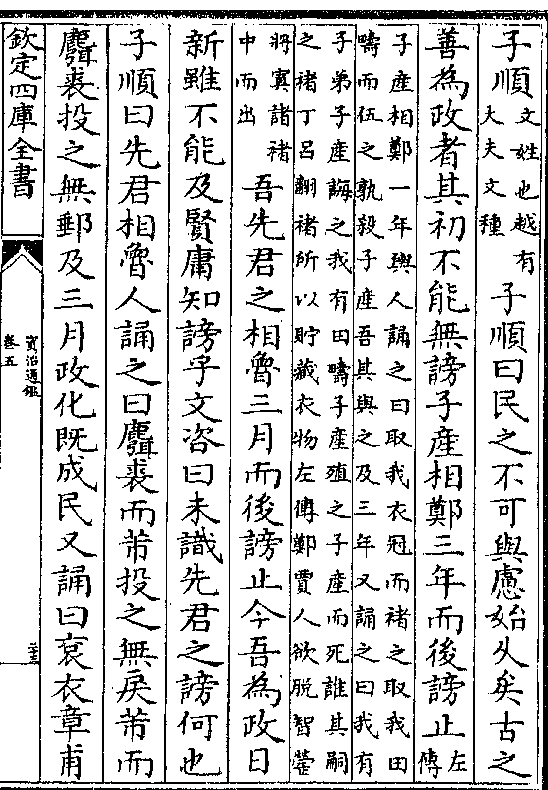 子順文姓也越有
大夫文種子順曰民之不可與慮始久矣古之
善為政者其初不能無謗子產相鄭三年而後謗止左
傳
子產相鄭一年輿人誦之曰取我衣冠而褚之取我田
疇而伍之孰殺子產吾其與之及三年又誦之曰我有
子弟子產誨之我有田疇子產殖之子產而死誰其嗣
之褚丁呂翻褚所以貯藏衣物左傳鄭賈人欲脫智罃
將寘諸褚
中而出吾先君之相魯三月而後謗止今吾為政日
新雖不能及賢庸知謗乎文咨曰未識先君之謗何也
子順曰先君相魯人誦之曰麛裘而芾投之無戾芾而
麛裘投之無郵及三月政化既成民又誦曰衮衣章甫
欽定四庫全書
資治通鑑
卷五
二十三